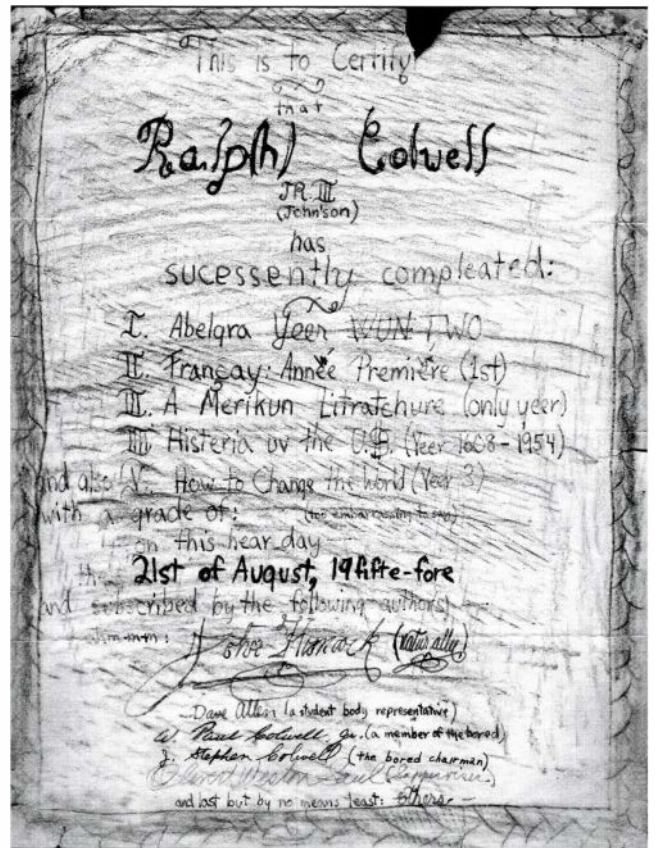 This is to Certify
that
Ralp(h) Colwell
JR. III
(John'son)
has
sucessently compleated:
I. Abelgra Yeer WUN TWO
II. Françay: Année Premiére (1st)
III. A Merikun Litratchure (only yeer)
IIII Histeria uv the U.S. (Yeer 1668-1954)
and also V. How to Change the World (Year 3)
with a grade of: (too embarrassing to say)
on this hear day
the 21st of August, 19 fifte-fore
and subscribed by the following authors)
ahm-m-m: (naturally)
Dave Allen (a student body representative)
W. Paul Colwell, Jr. (a member of the bored)
J. Stephen Colwell (the bored chairman)
and last but by no means least: others—